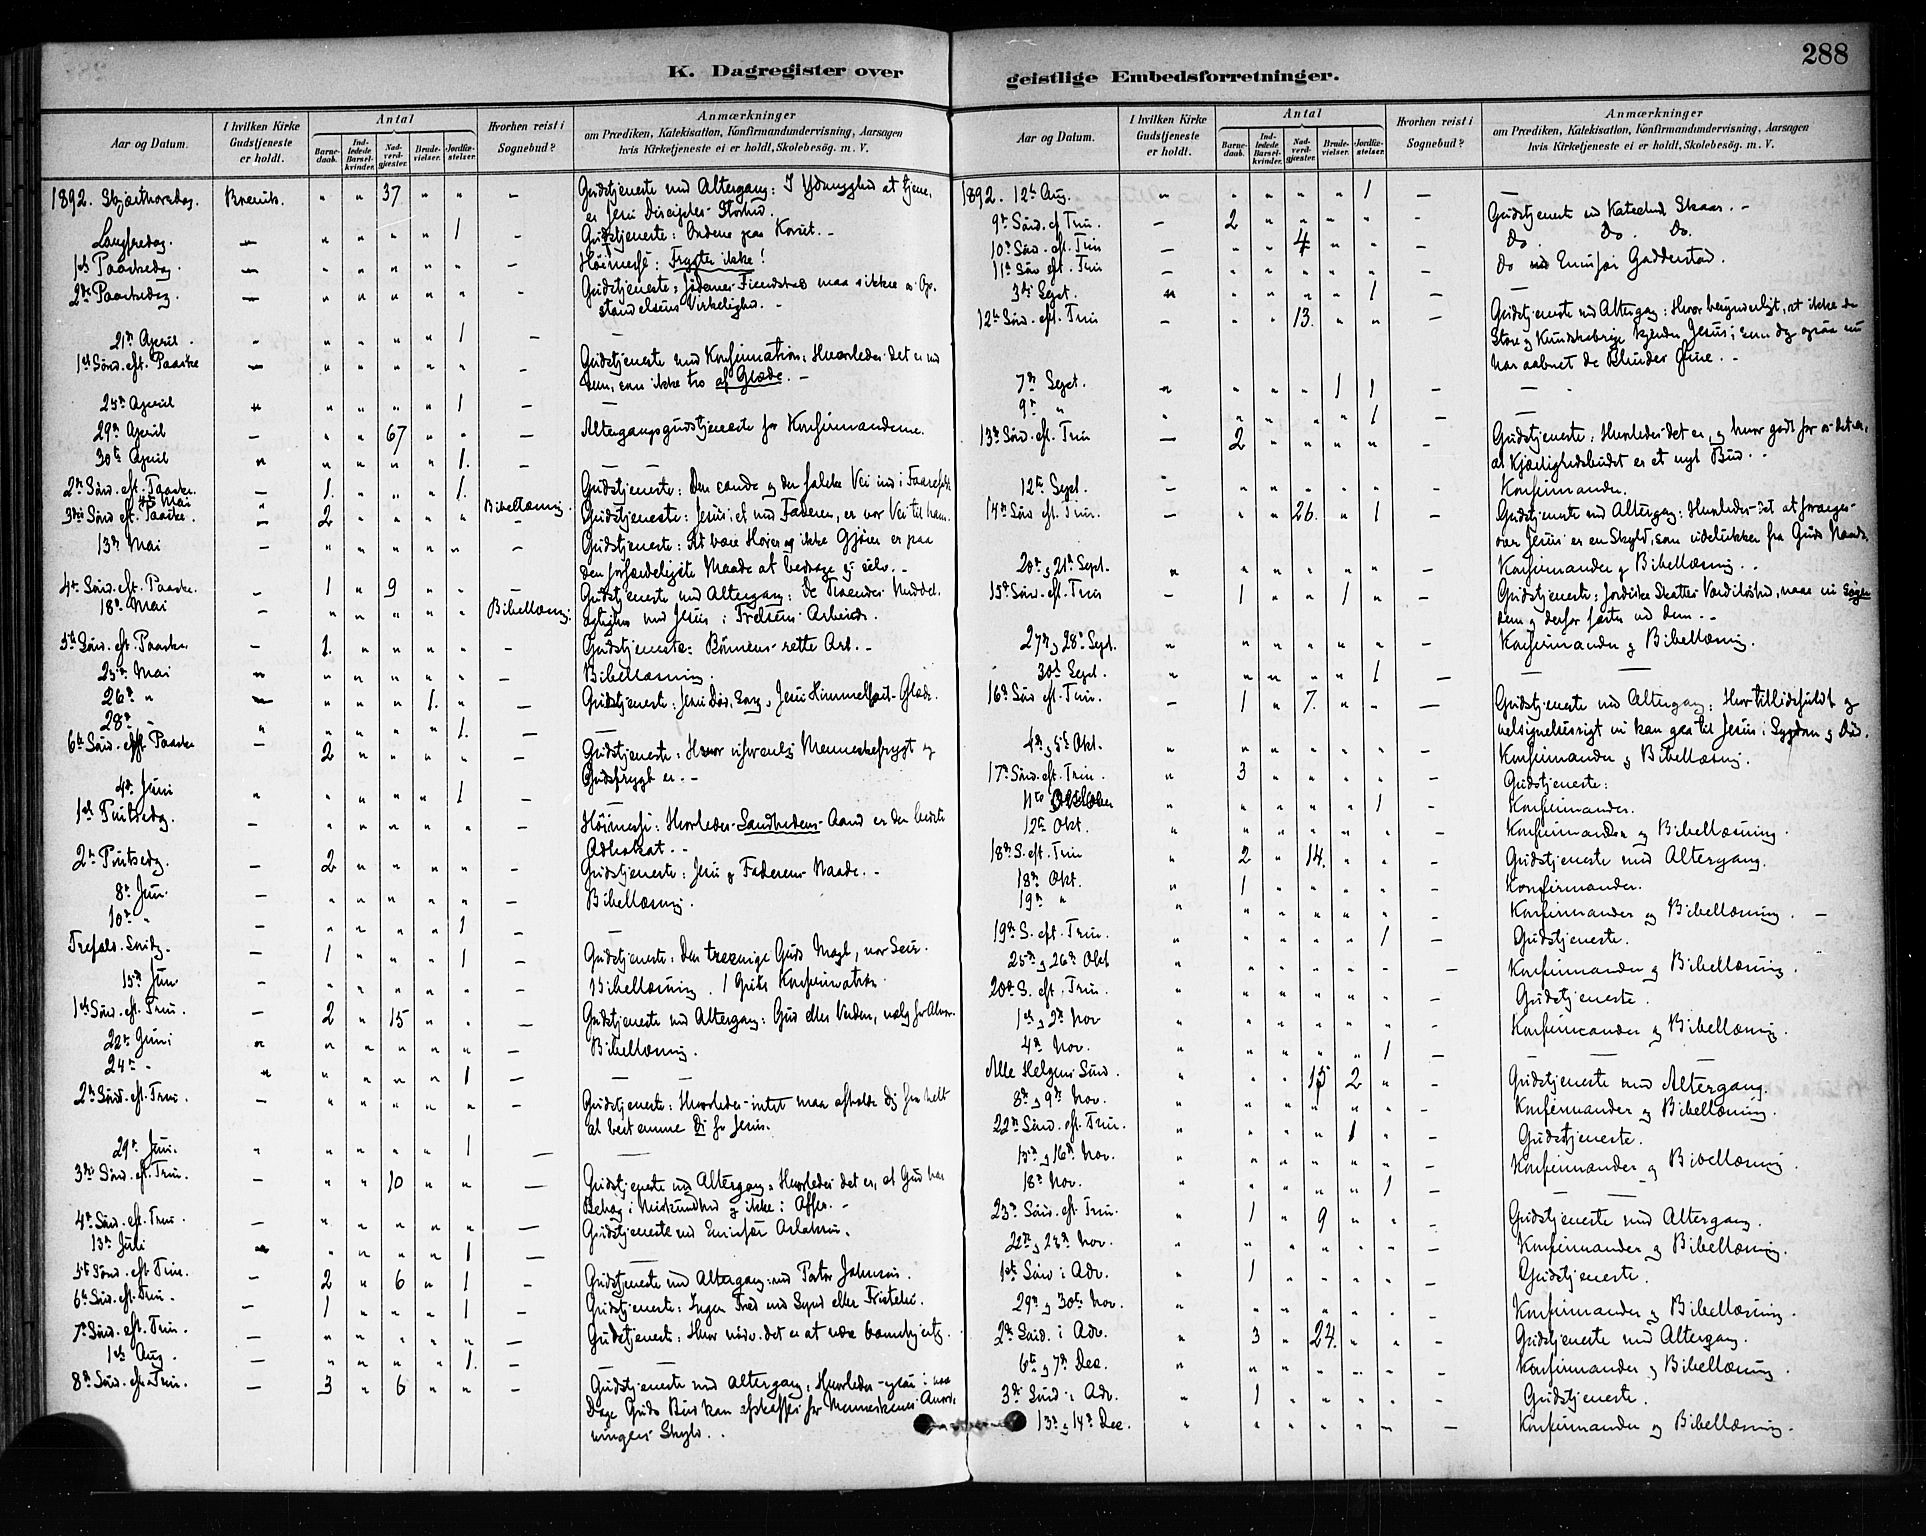 288
K. Dagregister over
geistlige Embedsforretninger.
Aar og Datum.
I hvilken Kirke Gudstjeneste er holdt.
Antal
Barnedaab.
Indledede Barselkvinder.
Nadverdgjæster.
Brudevielser.
Jordfæstelser.
Hvorhen reist i Sognebud?
Anmærkninger
om Prædiken, Katekisation, Konfirmandundervisning, Aarsagen
hvis Kirketjeneste ei er holdt, Skolebesøg. m. V.
1892. Skjærthorsdag. Brevik. " " 37 " " – Gudstjeneste med Altergang: I Ydmyghed at tjene,
er Jesu Disciples Storhed.
Langfredag. – " " " " 1 – Gudstjeneste: Ordene paa Korset. –
1ste Paaskedag. – " " " " " – Höimesse: Frygter ikke!
2den Paaskedag. – " " " " " – Gudstjeneste: Jødernes Fiendskab maa sikke os Op-
standelsens Virkelighed. –
21de April " " " " " 1 – –
1ste Sönd. eft. Paaske – " " " " " – Gudstjeneste med Konfirmation: Hvorledes det er med
dem, som ikke tro af Glæde. –
25de April " " " " " 1 – –
29de April – " " 67 " " – Altergangsgudstjeneste for Konfirmanderne.
30te April " " " " " 1. – –
2den Sönd. eft. Paaske. – 1. " " " 1. Gudstjeneste: Den sande og den falske Vei ind i Faarefoldt
4de Mai Bibellæsning.
3die Sönd eft. Paaske. – 2 " " " " – Gudstjeneste: Jesus, et med Faderen, er vor Vei til ham.
13de Mai – " " " " " – Gudstjeneste: At være Hörer og ikke Gjører er paa
den forfærdeligste Maade at bedrage sig selv. –
4de Sönd. eft. Paaske. – 1 " 9 " " – Gudstjeneste med Altergang: De Troendes
18de Mai – " " " " " Bibellæsning. med Jesus i Frelsens Arbeide.
5te Sönd. eft. Paaske – 1. " " " " – Gudstjeneste: Bönnens rette Art. –
25de Mai " " " " " " – Bibellæsning.
26de " – " " " 1. " – Gudstjeneste: Jesu Död, Sorg, Jesu Himmelfart – Glæde.
28de " " " " " " 1. – –
6te Sönd. eft. Paaske – 2 " " " " – Gudstjeneste: Hvor uforenlig Menneskefrygt og
Gudsfrygt er. –
4de Juni " " " " " 1 – –
1ste Pintsedag. – " " " " " – Höimesse: Hvorledes Sandhedens Aand er den bedste
Advokat. –
2den Pintsedg. – 2 " " " " – Gudstjeneste: Jesu og Faderens Naade. –
8de Juni – " " " " " – Bibellæsning.
10de " – " " " " 1 – –
Trefold. Sondg. – 1 " " " 1 – Gudstjeneste: Den treenige Guds Magt, vor Seir.
15de Jun – " " " " " – Bibellæsning. 1 Konfirmation.
1ste Sönd. eft. Trin. – 2 " 15 " " – Gudstjeneste med Altergang: Gud eller Verden, vælg for Alvor.
22de Juni " " " " " " – Bibellæsning.
24de " " " " " " 1 – –
2den Sönd. eft. Trin. – " " " " " – Gudstjeneste: Hvorledes intet maa afholde dig fra helt
at bestemme dig for Jesus.
29de Juni. " " " " " 1 – –
3die Sönd. eft. Trin. – " " 10 " " – Gudstjeneste med Altergang: Hvorledes det er, at Gud har
Behag i Miskundhed og ikke i Offer. –
4de Sönd. eft. Trin. – " " " " " – Gudstjeneste ved
13de Juli – " " " " 1 –
5te Sönd. eft. Trin. – 2 " 6 " 1 – Gudstjeneste med Altergang ved Pastor Johnson.
6te Sönd. eft. Trin. – 1 " " " 1 – Gudstjeneste: Ingen Fred ved Synd eller
7de Sönd. eft. Trin. – " " " " " – Gudstjeneste: Hvor nödv. det er at være barmhjertig.
1ste Aug. – " " " " 1. –
8de Sönd. eft. Trin. – 3 " 6 " " – Gudstjeneste med Altergang: Hvorledes ogsaa i vore
Dage Guds Bud kan afskaffes for Menneskenes Anord-
ningers Skyld. –
Aar og Datum.
I hvilken Kirke Gudstjeneste er holdt.
Antal
Barnedaab.
Indledede Barselkvinder.
Nadverdgjæster.
Brudevielser.
Jordfæstelser.
Hvorhen reist i Sognebud?
Anmærkninger
om Prædiken, Katekisation, Konfirmandundervisning, Aarsagen
hvis Kirketjeneste ei er holdt, Skolebesøg. m. V.
1892. 12te Aug. " " " " " 1 – –
9de Sönd. eft Trin. – 2 " " " " – Gudstjeneste ved Skaar. –
10de Sönd. eft. Trin – " " 4 " " – Do. Do. Do.
11te Sön eft. Trin – " " " " " – Do ved Gadderstad.
3die Sept. " " " " " 1 – –
12te Sönd. eft. Trin – " " 13. " " – Gudstjeneste med Altergang: Hvor begynderligt, at ikke de
Store og Kundskabsrige kjender Jesus, som dog ogsaa nu
har aabnet de Blindes Öine. –
7de Sept. " " " " 1 1 – –
9de " " " " " " 1 – –
13de Sönd. eft. Trin – 2 " " " " – Gudstjeneste: Hvorledes det er, og hvor godt for os det er,
at Kjærlighedsbudet er et nyt Bud. –
12te Sept. – " " " " " – Konfirmander.
14de Sönd eft. Trin. – " " 26. " 1 – Gudstjeneste med Altergang: Hvorledes det at forarges
over Jesus er en Skyld, som udelukker fra Guds Naade.
20de og 21de Sept. " " " " " " – Konfirmander og Bibellæsning. –
15de Sönd. eft. Trin – 1 " " 1 " – Gudstjeneste: Jordiske Skattes Værdilöshed, naar vi söger
dem og derfor fæster ved dem. –
27de og 28de Sept. " " " " " " – Konfirmander og Bibellæsning.
30te Sept. " " " " " 1 – –
16de Sönd eft. Trin. – 1 " 7. " " – Gudstjeneste med Altergang: Hvor tillidsfuldt og
velsignelsesrigt vi kan gaa til Jesus i Sygdom og Död.
4de og 5te Okt. " " " " " " – Konfirmander og Bibellæsning.
17de Sönd. eft. Trin. " 3 " " " " – Gudstjeneste:
11te Oktober " " " " " 1 – Konfirmander.
12te Okt. " " " " " " – Konfirmander og Bibellæsning.
18de S. eft. Trin " 2 " 14. " " – Gudstjeneste med Altergang.
18de Okt. " 1 " " " " – Konfirmander.
19de " " " " " " " – Konfirmander og Bibellæsning. –
19de S. eft. Trin. " " " " " 1 – Gudstjeneste.
25de og 26de Okt " " " " " " – Konfirmander og Bibellæsning.
20de S. eft. Trin. " " " " " " – Gudstjeneste.
1ste og 2den Nov " " " " " " – Konfirmander og Bibellæsning.
4de Nov. " " " " " 1 – –
Alle Helgens Sönd. " " " 15 2 " – Gudstjeneste med Altergang.
8de og 9de Nov. " " " " " " – Konfirmander og Bibellæsning.
22de Sönd. eft. Trin. " " " " 1 " – Gudstjeneste.
15de og 16de Nov. " " " " " " – Konfirmander og Bibellæsning.
18de Nov. " " " " " 1 – –
23de Sönd. eft. Trin. " 1 " 9 " " – Gudstjeneste med Altergang.
22de og 23de Nov. " " " " " " – Konfirmander og Bibellæsning.
1ste Sönd i Adv. " 1 " " " " – Gudstjeneste.
29de og 30te Nov. " " " " " " – Konfirmander og Bibellæsning.
2den Sönd. i Adv. " 3 " 24. " " – Gudstjeneste med Altergang.
6te og 7de Dec. " " " " " " – Konfirmander og Bibellæsning.
3die Sönd i Adv. " 1 " " " " – Gudstjeneste.
13de og 14de Dec. " " " " " " – Konfirmander og Bibellæsning.